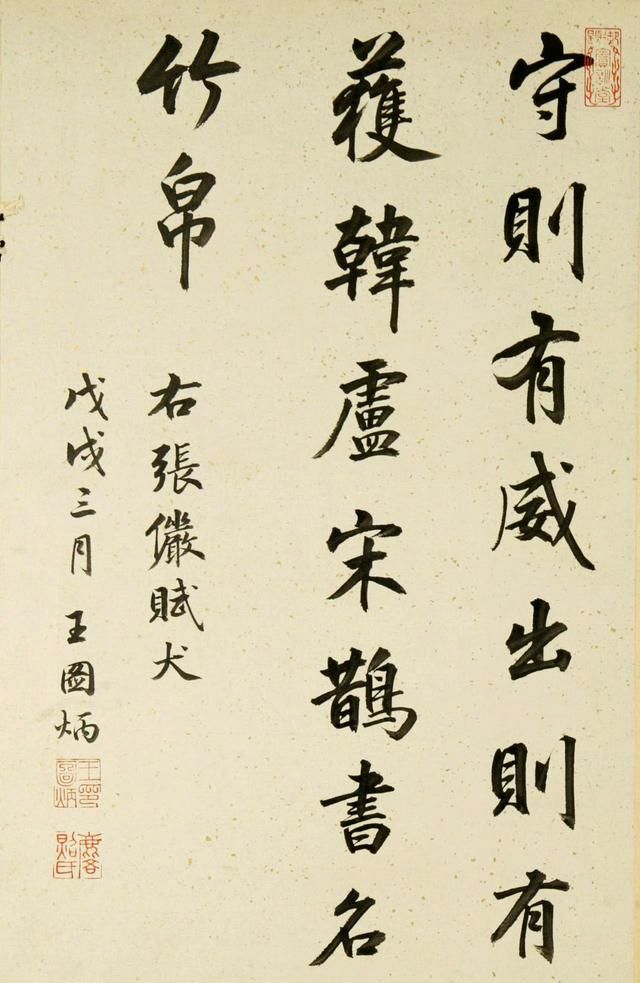 守則有威出則有
獲韓盧宋鵲書名
竹帛
右張儼賦犬
戊戌三月 王圖炳
王圖炳